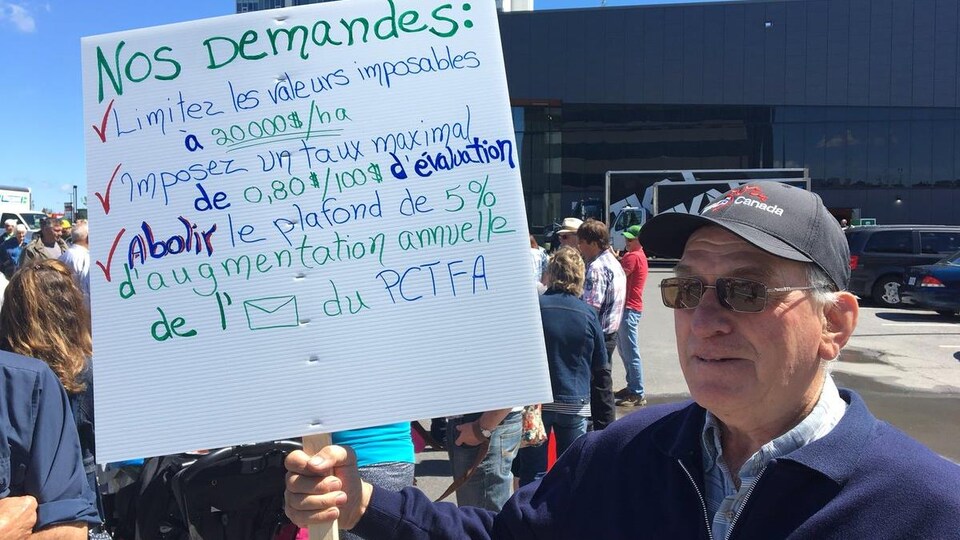 Nos Demandes:
Limitez les valeurs imposables
à 20000$/ha
Imposez un taux maximal
de 0,80$/100$ d'évaluation
Abolir le plafond de 5%
d'augmentation annuelle
de l' du PCTFA
Canada